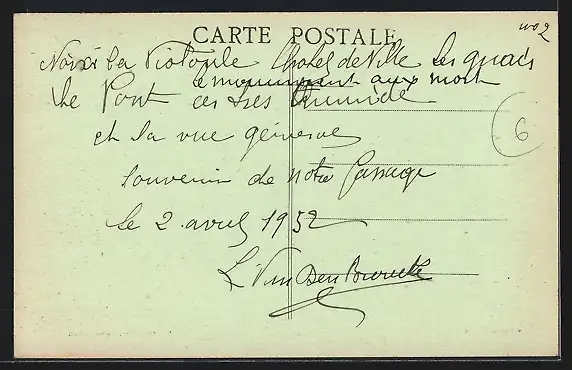 CARTE POSTALE
wo2
la l'hotel de Ville les quais
le monument aux mort
Le Pont ces tres humide
6
et la vue général
souvenir de notre passage
le 2 avril 1952
L Van Den